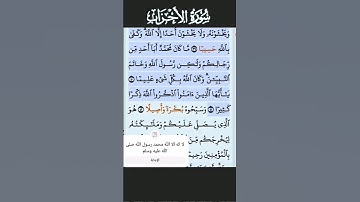 سُورَةُ الأَحْزَابِ
وَيَخْشَوْنَهُۥ وَلَا يَخْشَوْنَ أَحَدًا إِلَّا ٱللَّهَ ۗ وَكَفَىٰ
بِٱللَّهِ حَسِيبًا ۝ مَّا كَانَ مُحَمَّدٌ أَبَآ أَحَدٍ مِّن
رِّجَالِكُمْ وَلَـٰكِن رَّسُولَ ٱللَّهِ وَخَاتَمَ
ٱلنَّبِيِّـۧنَ ۗ وَكَانَ ٱللَّهُ بِكُلِّ شَىْءٍ عَلِيمًا ۝
يَـٰٓأَيُّهَا ٱلَّذِينَ ءَامَنُوا۟ ٱذْكُرُوا۟ ٱللَّهَ ذِكْرًا
كَثِيرًا ۝ وَسَبِّحُوهُ بُكْرَةً وَأَصِيلًا ۝ هُوَ
ٱلَّذِى يُصَلِّى عَلَيْكُمْ وَمَلَـٰٓئِكَتُهُۥ
لِيُخْرِجَكُم مِّنَ
بِٱلْمُؤْمِنِينَ رَحِيمًا
لا اله الا الله محمد رسول الله صلى
الله عليه وسلم